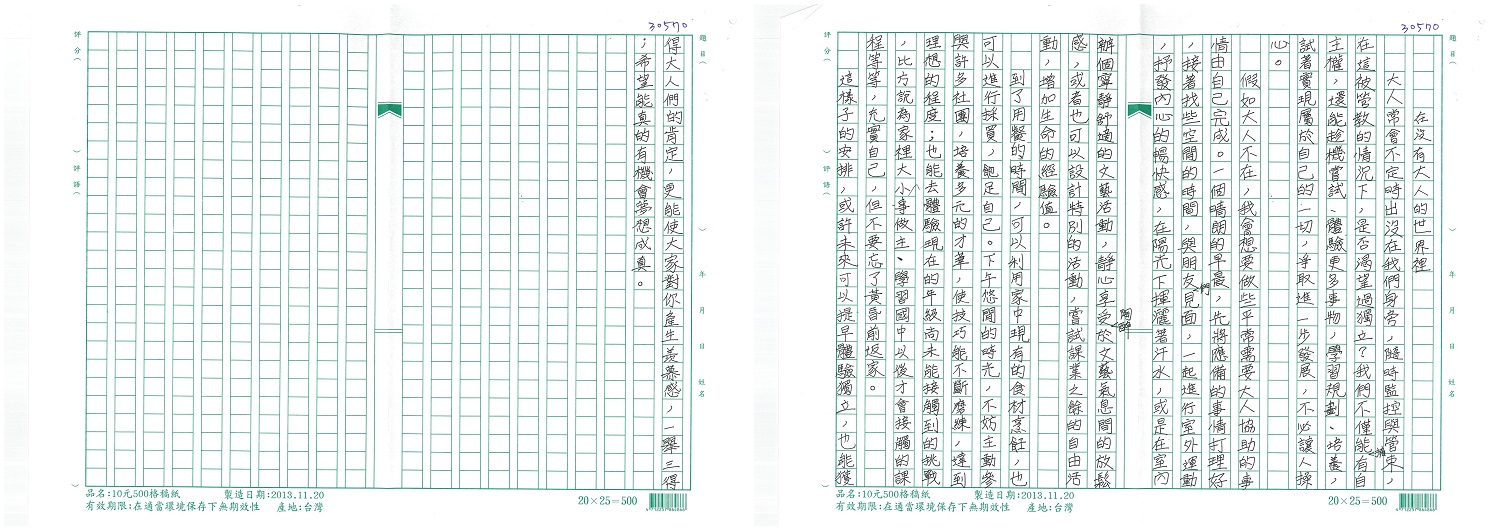 30570
題目（ ） 年 月 日 姓名
在沒有大人的世界裡
大人常會不定時出沒在我們身旁，隨時監控與管束，
在這被管教的情況下，是否渴望過獨立？我們不僅能擁有自
主權，還能趁機嘗試、體驗更多事物，學習規劃、培養，
試著實現屬於自己的一切，爭取進一步發展，不必讓人操
心。
假如大人不在，我會想要做些平常需要大人協助的事
情由自己完成。一個晴朗的早晨，先將應備的事情打理好
，接著找些空閒的時間，與朋友們見面，一起進行室外運動
，抒發內心的暢快感，在陽光下揮灑著汗水，或是在室內
辦個寧靜舒適的文藝活動，靜心享受陶醉於文藝氣息間的放鬆
感，或者也可以設計特別的活動，嘗試課業之餘的自由活
動，增加生命的經驗值。
到了用餐的時間，可以利用家中現有的食材烹飪，也
可以進行採買，飽足自己。下午悠閒的時光，不妨主動參
與許多社團，培養多元的才華，使技巧能不斷磨練，達到
理想的程度；也能去體驗現在的年級尚未能接觸到的挑戰
，比方說為家裡大小事做主、學習國中以後才會接觸的課
程等等，充實自己，但不要忘了黃昏前返家。
這樣子的安排，或許未來可以提早體驗獨立，也能獲
評分（ ）評語（ ）
品名:10元500格稿紙 製造日期:2013.11.20
有效期限:在適當環境保存下無期效性 產地:台灣
20×25=500
30570
題目（ ） 年 月 日 姓名
得大人們的肯定，更能使大家對你產生羨慕感，一舉三得
；希望能真的有機會夢想成真。
評分（ ）評語（ ）
品名:10元500格稿紙 製造日期:2013.11.20
有效期限:在適當環境保存下無期效性 產地:台灣
20×25=500